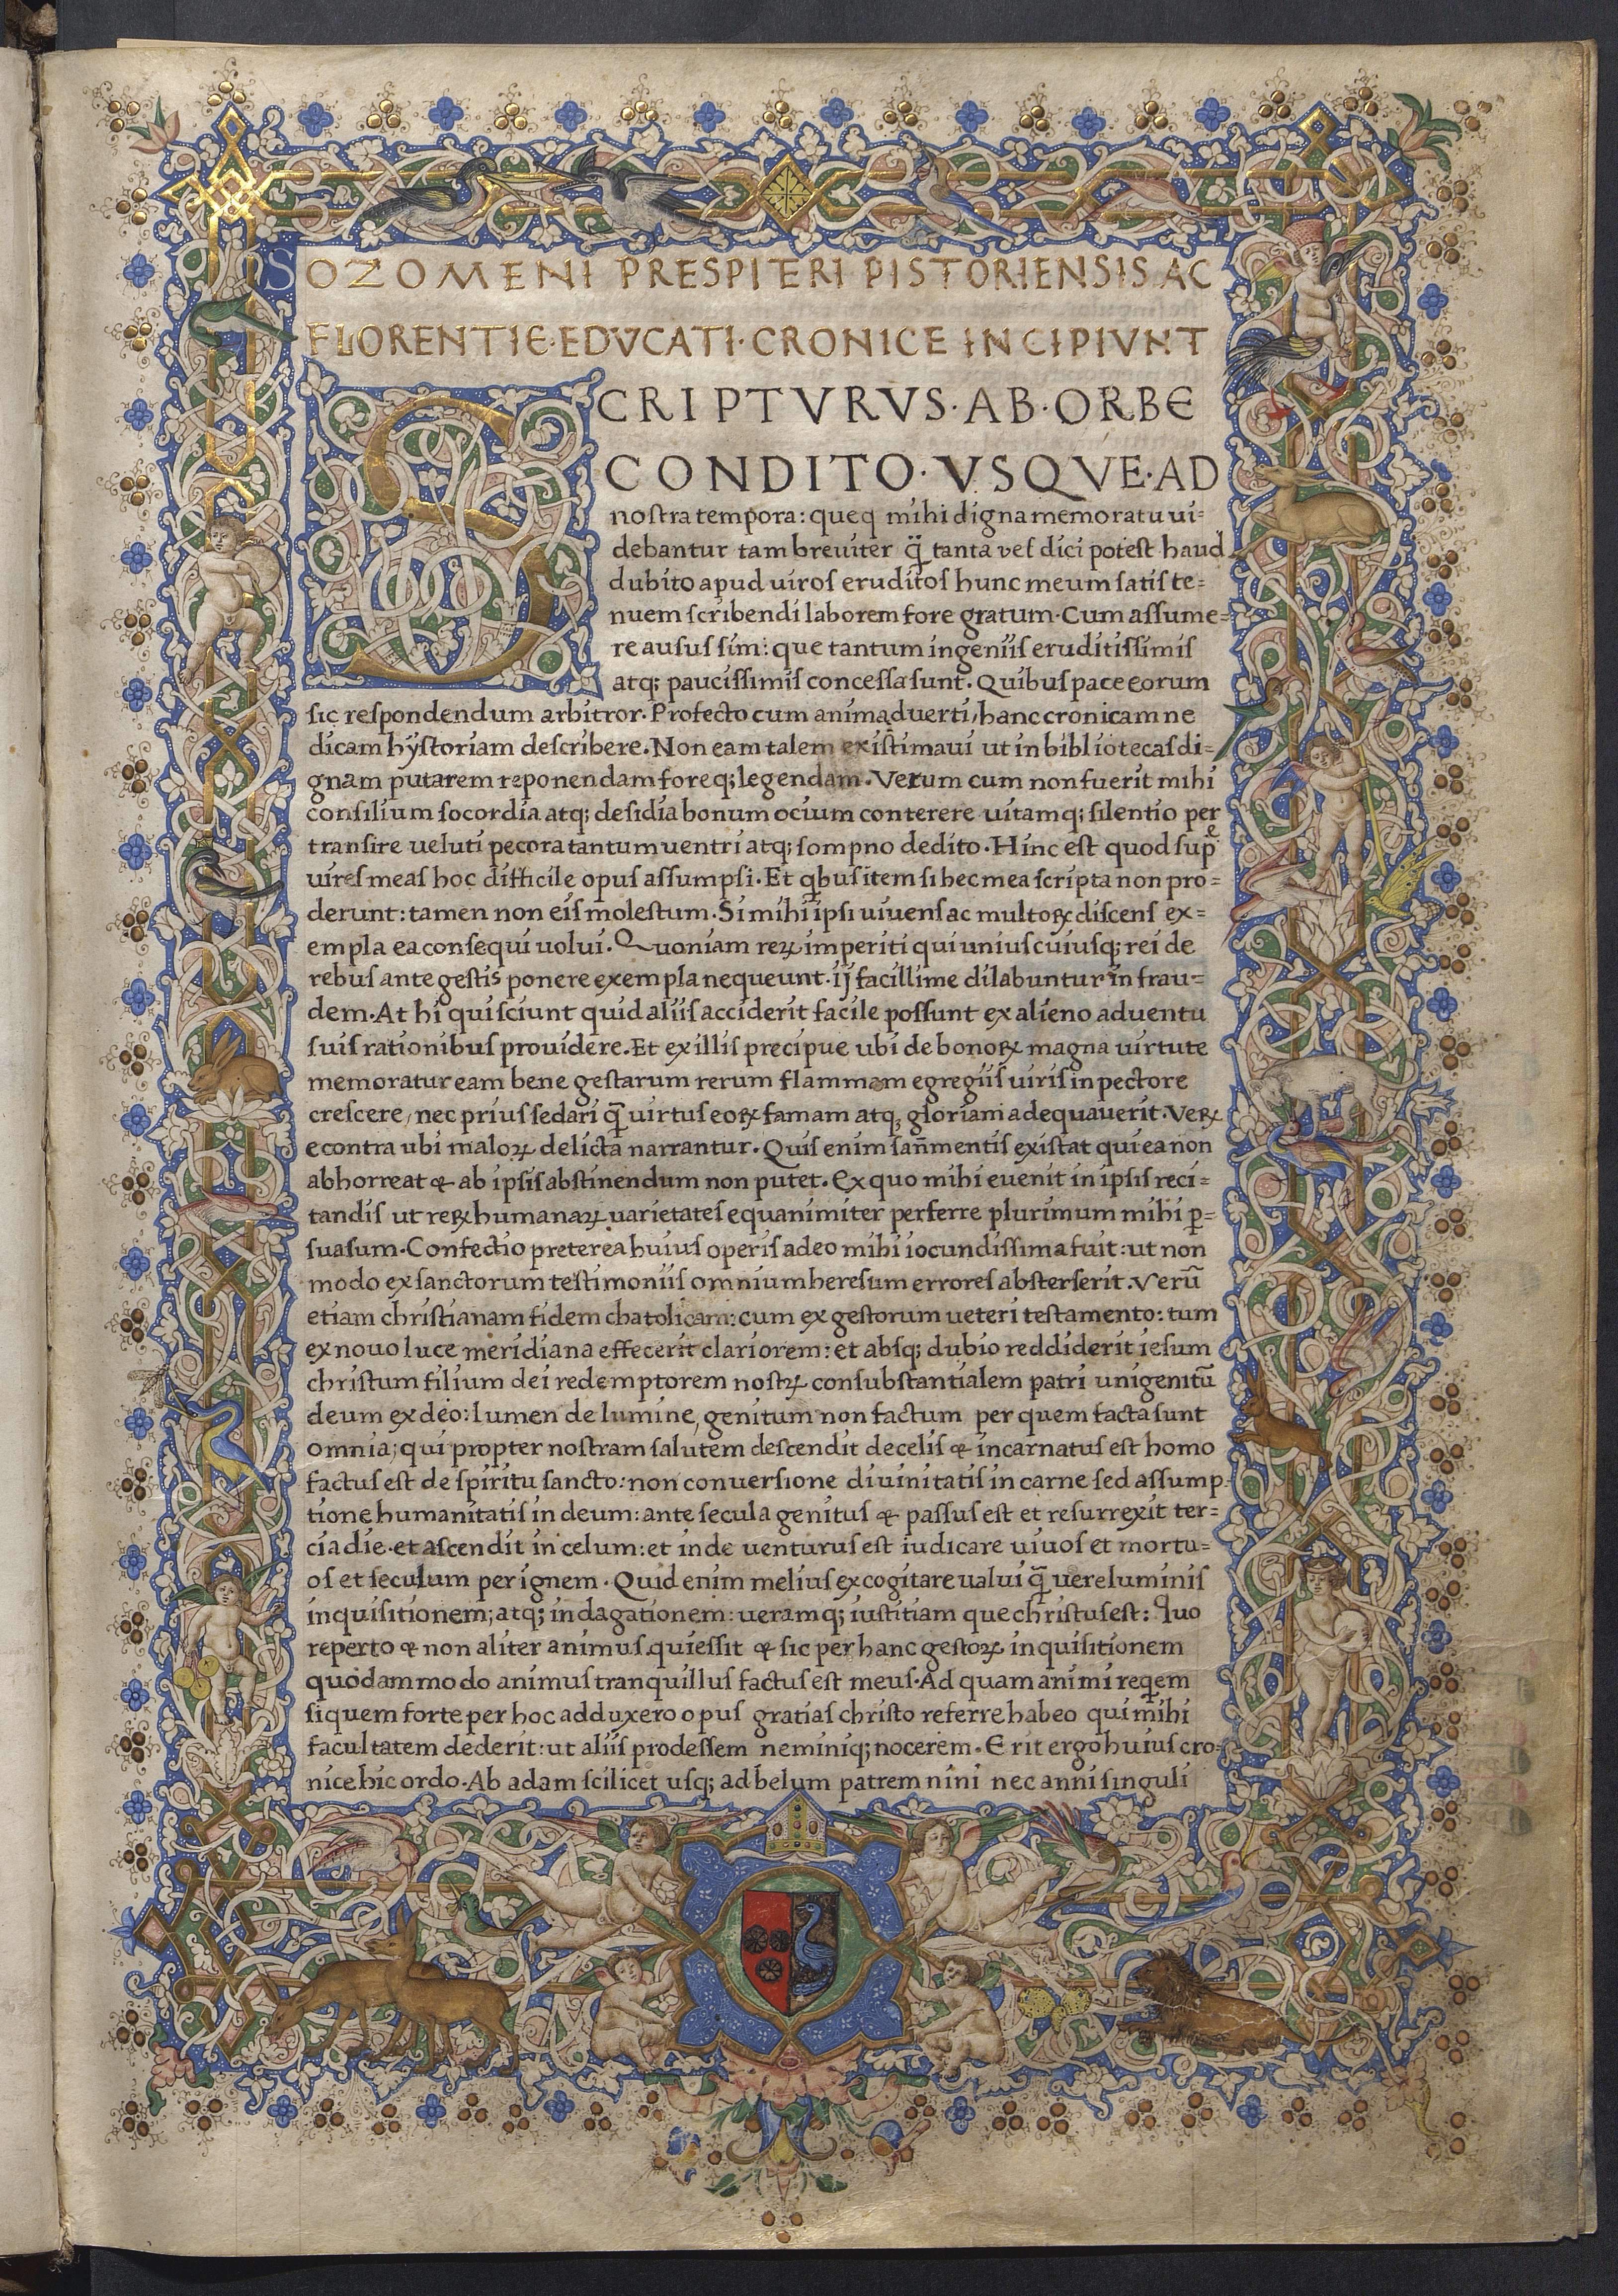 SOZOMENI PRESPITERI PISTORIENSIS AC
FLORENTIE·EDVCATI·CRONICE INCIPIVNT
SCRIPTVRVS·AB·ORBE
CONDITO·VSQVE·AD
nostra tempora: queq mihi digna memoratu ui=
debantur tam breuiter q̃ tanta vel dici potest haud
dubito apud uiros eruditos hunc meum satis te=
nuem scribendi laborem fore gratum·Cum assume=
re ausus sim: que tantum ingeniis eruditissimis
atq; paucissimis concessa sunt. Quibus pace eorum
sic respondendum arbitror·Profecto cum animaduerti, hanc cronicam ne
dicam hystoriam describere. Non eam talem existimaui ut in bibliotecas di=
gnam putarem reponendam foreq; legendam. Verum cum non fuerit mihi
consilium socordia atq; desidia bonum ocium conterere uitamq; silentio per
transire ueluti pecora tantum uentri atq; sompno dedito. Hinc est quod sup
uires meas hoc difficile opus assumpsi. Et qbus item si hec mea scripta non pro=
derunt: tamen non eis molestum. Si mihi ipsi uiuens ac multoꝝ discens ex=
empla ea consequi uolui. Quoniam reꝝ imperiti qui uniuscuiusq; rei de
rebus ante gestis ponere exempla nequeunt. ij facillime dilabuntur in frau=
dem. At hi qui sciunt quid aliis acciderit facile possunt ex alieno aduentu
suis rationibus prouidere. Et ex illis precipue ubi de bonoꝝ magna uirtute
memoratur eam bene gestarum rerum flammam egregiis uiris in pectore
crescere, nec prius sedari q̃ uirtus eoꝝ famam atq; gloriam adequauerit. Veꝝ
econtra ubi maloꝝ delicta narrantur. Quis enim sañ mentis existat qui ea non
abhorreat & ab ipsis abstinendum non putet. Ex quo mihi euenit in ipsis reci=
tandis ut reꝝ humanaꝝ uarietates equanimiter perferre plurimum mihi p=
suasum. Confectio preterea huius operis adeo mihi iocundissima fuit: ut non
modo ex sanctorum testimoniis omnium heresum errores absterserit. Verũ
etiam christianam fidem chatolicam: cum ex gestorum ueteri testamento: tum
ex nouo luce meridiana effecerit clariorem: et absq; dubio reddiderit iesum
christum filium dei redemptorem nostꝝ consubstantialem patri unigenitũ
deum ex deo: lumen de lumine, genitum non factum per quem facta sunt
omnia; qui propter nostram salutem descendit de celis & incarnatus est homo
factus est de spiritu sancto: non conuersione diuinitatis in carne sed assump
tione humanitatis in deum: ante secula genitus & passus est et resurrexit ter=
cia die. et ascendit in celum: et inde uenturus est iudicare uiuos et mortu=
os et seculum per ignem. Quid enim melius excogitare ualui q̃ uere luminis
inquisitionem; atq; indagationem: ueramq; iustitiam que christus est: Quo
reperto & non aliter animus quiessit & sic per hanc gestoꝝ inquisitionem
quodammodo animus tranquillus factus est meus. Ad quam animi reqem
siquem forte per hoc adduxero opus gratias christo referre habeo qui mihi
facultatem dederit: ut aliis prodessem neminiq; nocerem. Erit ergo huius cro=
nice hic ordo. Ab adam scilicet usq; ad belum patrem nini nec anni singuli